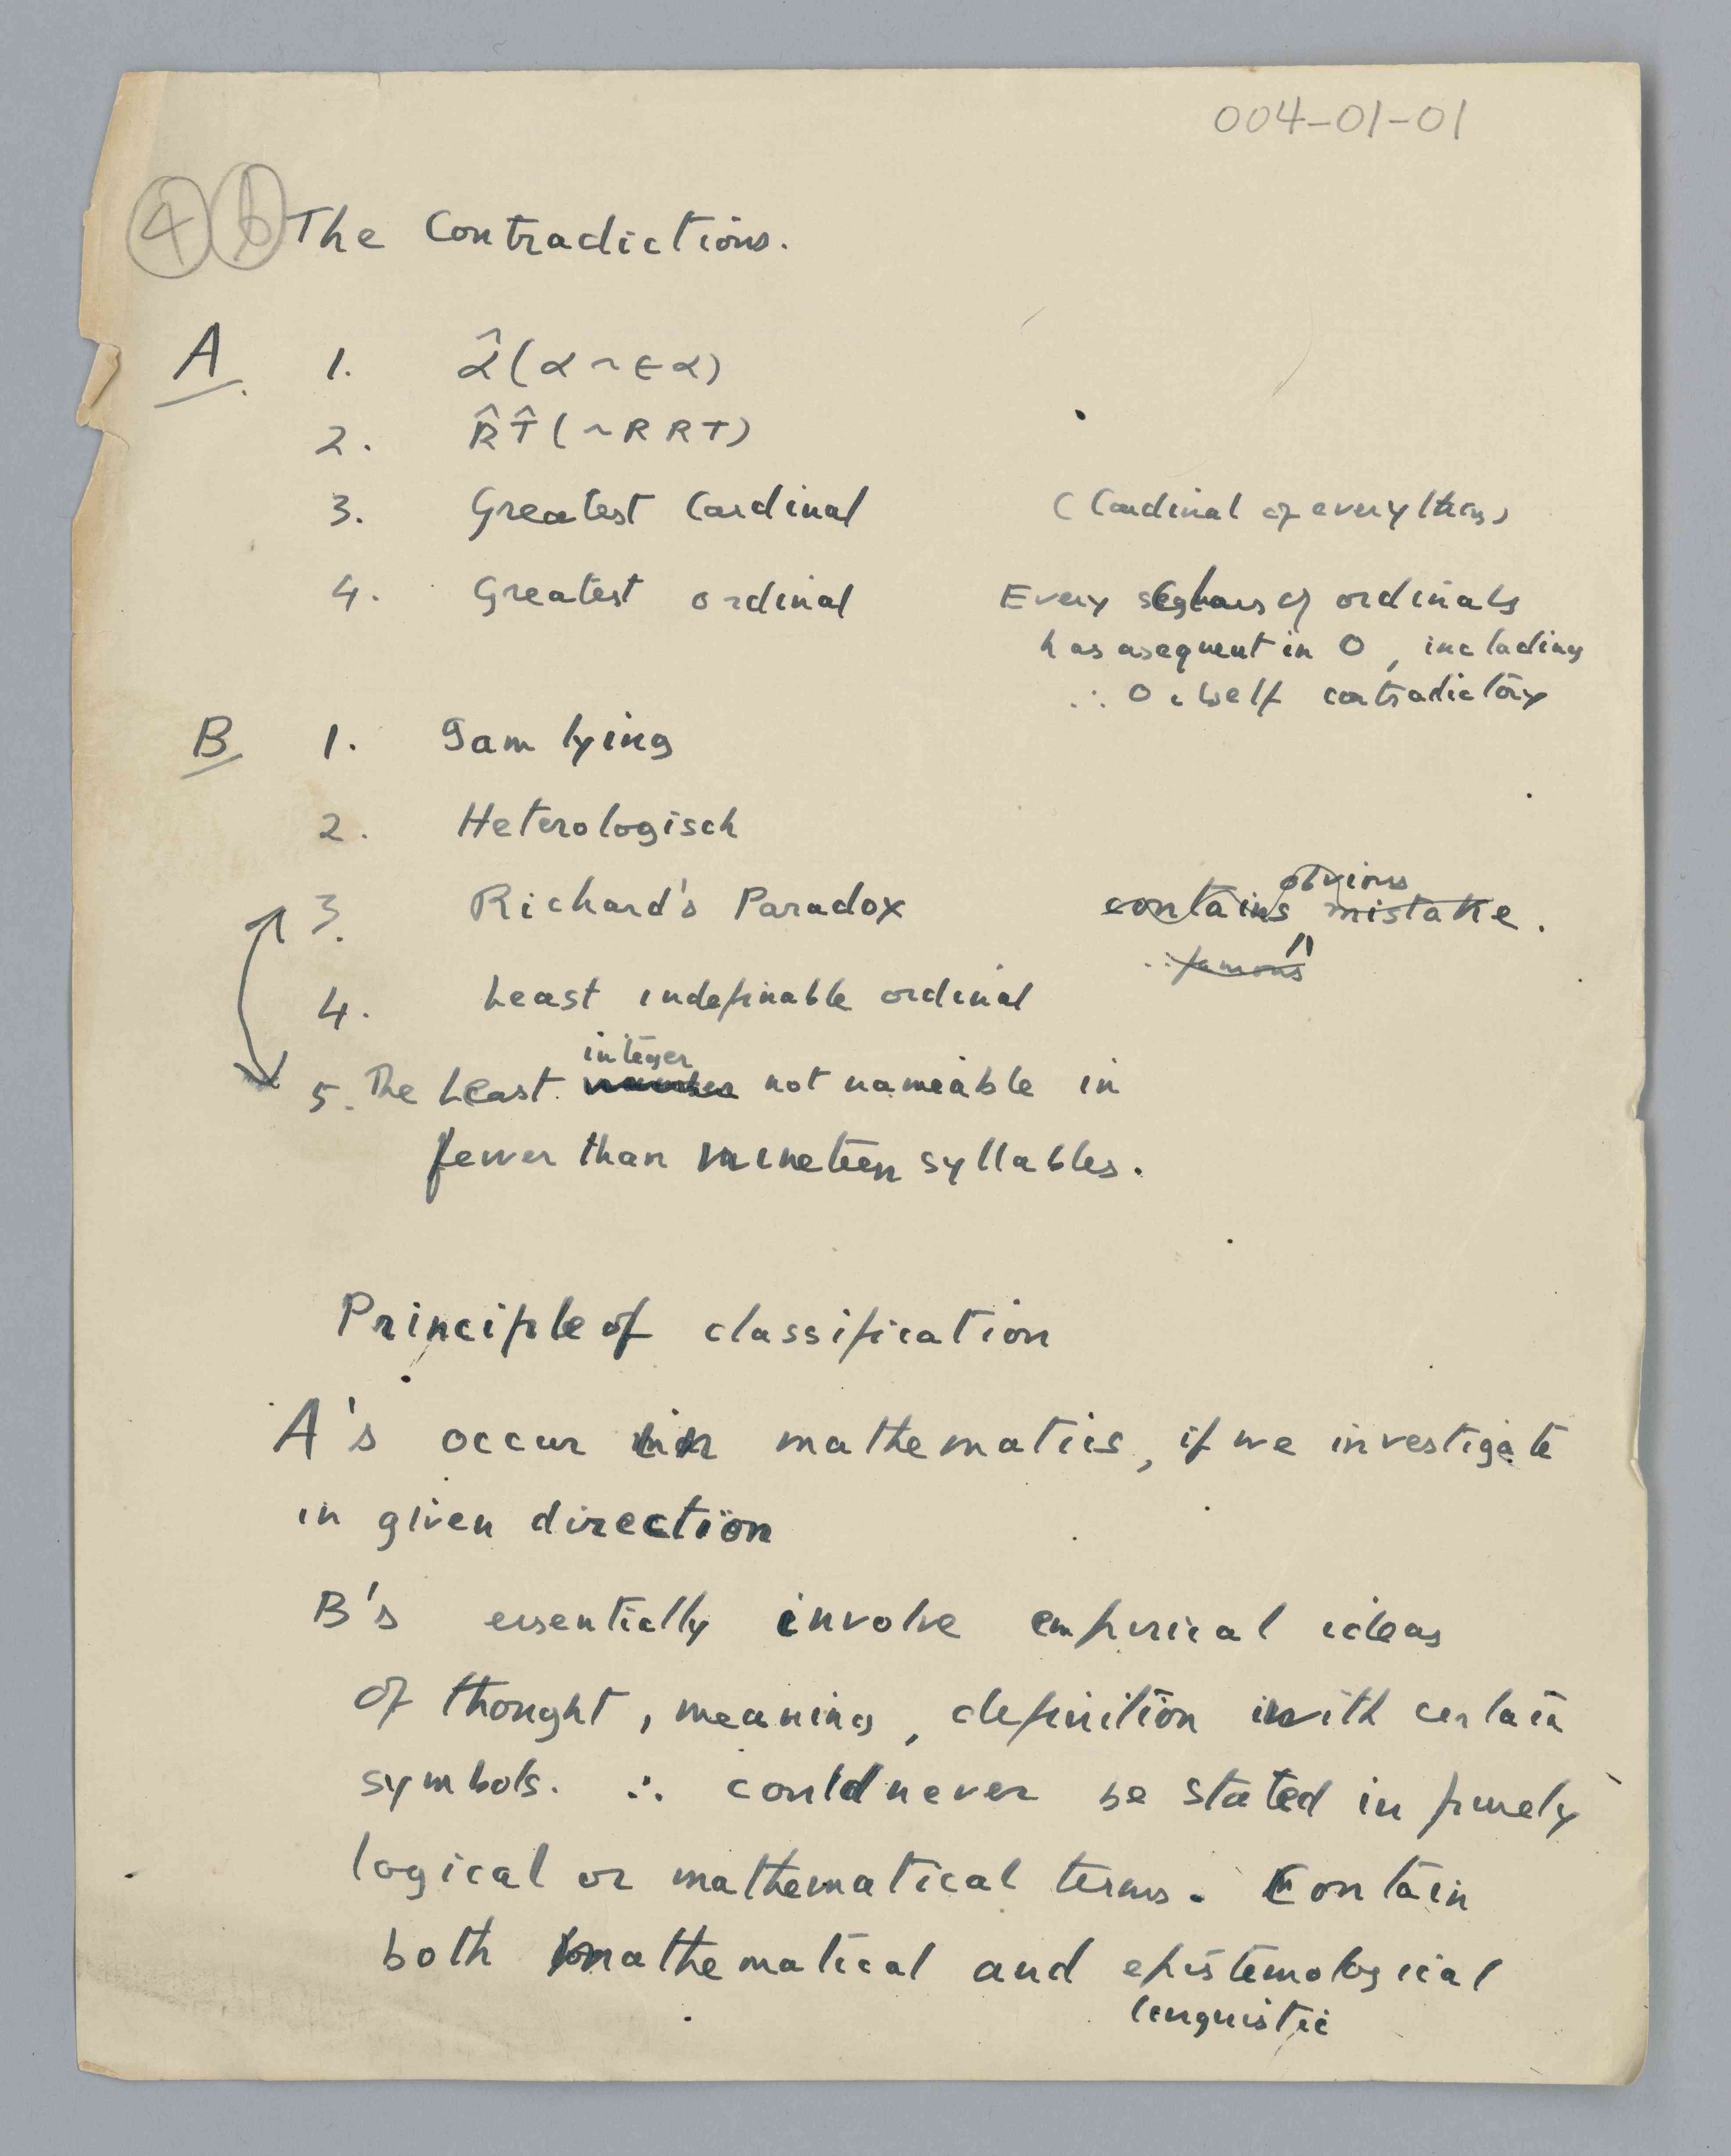 004-01-01
4 b The Contradictions.
A. 1. α̂(α ~ ϵ α)
2. R̂T̂(~RRT)
3. Greatest Cardinal (Cardinal of everything)
4. Greatest ordinal Every of ordinals
has a sequent in O, including
∴ O itself contradictory
B 1. I am lying
2. Heterologisch
obvious
3. Richard's Paradox contains mistake.
∴ famous
4. Least indefinable ordinal
integer
5. The Least number not nameable in
fewer than nineteen syllables.
Principle of classification
A's occur in mathematics, if we investigate
in given direction
B's essentially involve empirical ideas
of thought, meaning, definition with certain
symbols. ∴ could never be stated in purely
logical or mathematical terms. Contain
both mathematical and epistemological
linguistic